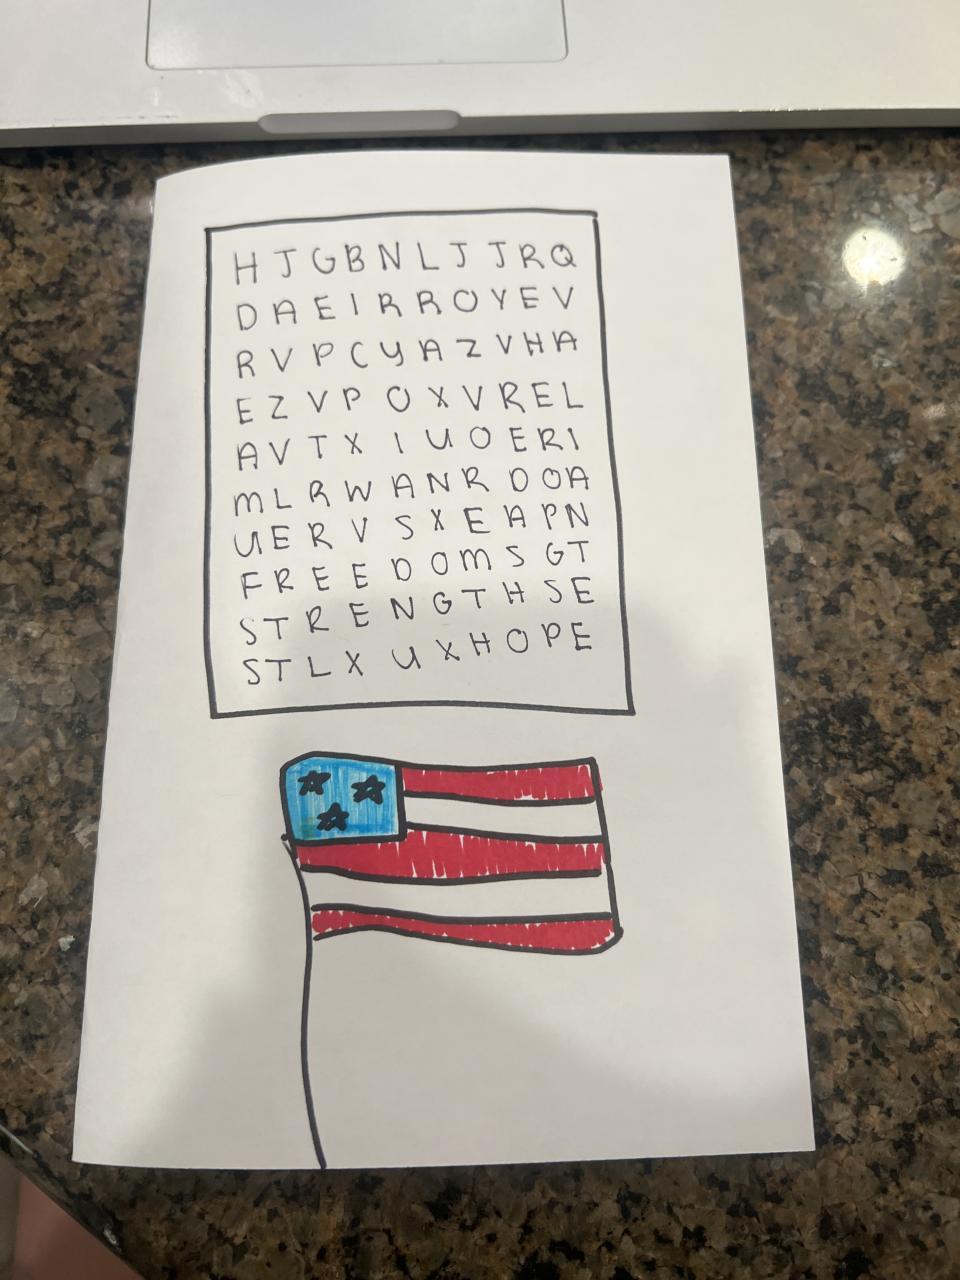 H J G B N L J J R Q
D A E I R R O Y E V
R V P C Y A Z V H A
E Z V P O X V R E L
A V T X I U O E R I
M L R W A N R D O A
U E R V S X E A P N
F R E E D O M S G T
S T R E N G T H S E
S T L X U X H O P E